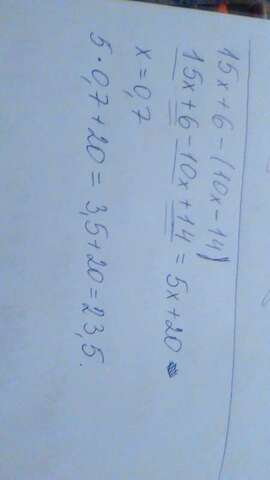 15x+6-(10x-14)
15x+6-10x+14=5x+20
x=0,7
5·0,7+20=3,5+20=23,5.